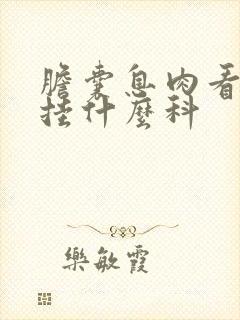 膽囊息肉看
挂什麼科
樂敏霞